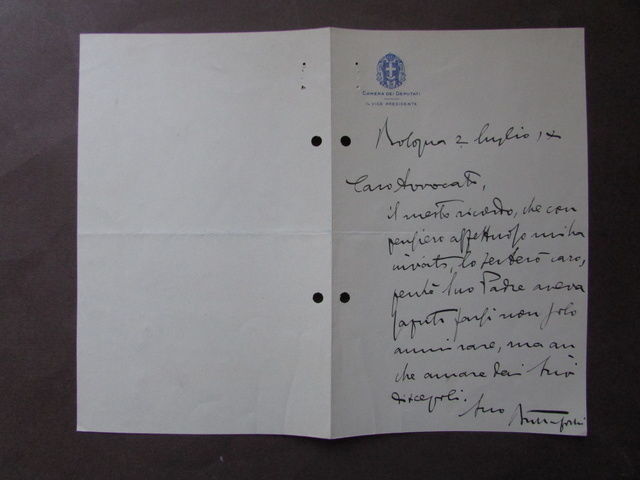 CAMERA DEI DEPUTATI
IL VICE PRESIDENTE
Bologna 2 luglio, IX
Caro Avvocato,
il mesto ricordo, che con
pensiero affettuoso mi ha
inviato, lo terrò caro,
perché Suo Padre aveva
saputo farsi non solo
ammirare, ma an
che amare dai suoi
discepoli.
Suo